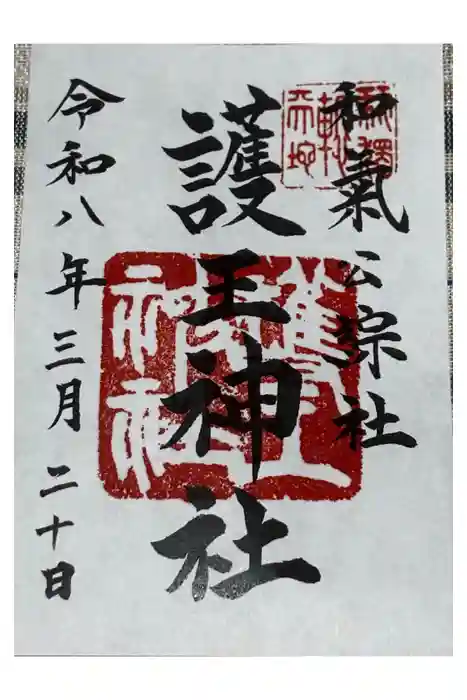 和氣公綜社
護王神社
令和八年三月二十日